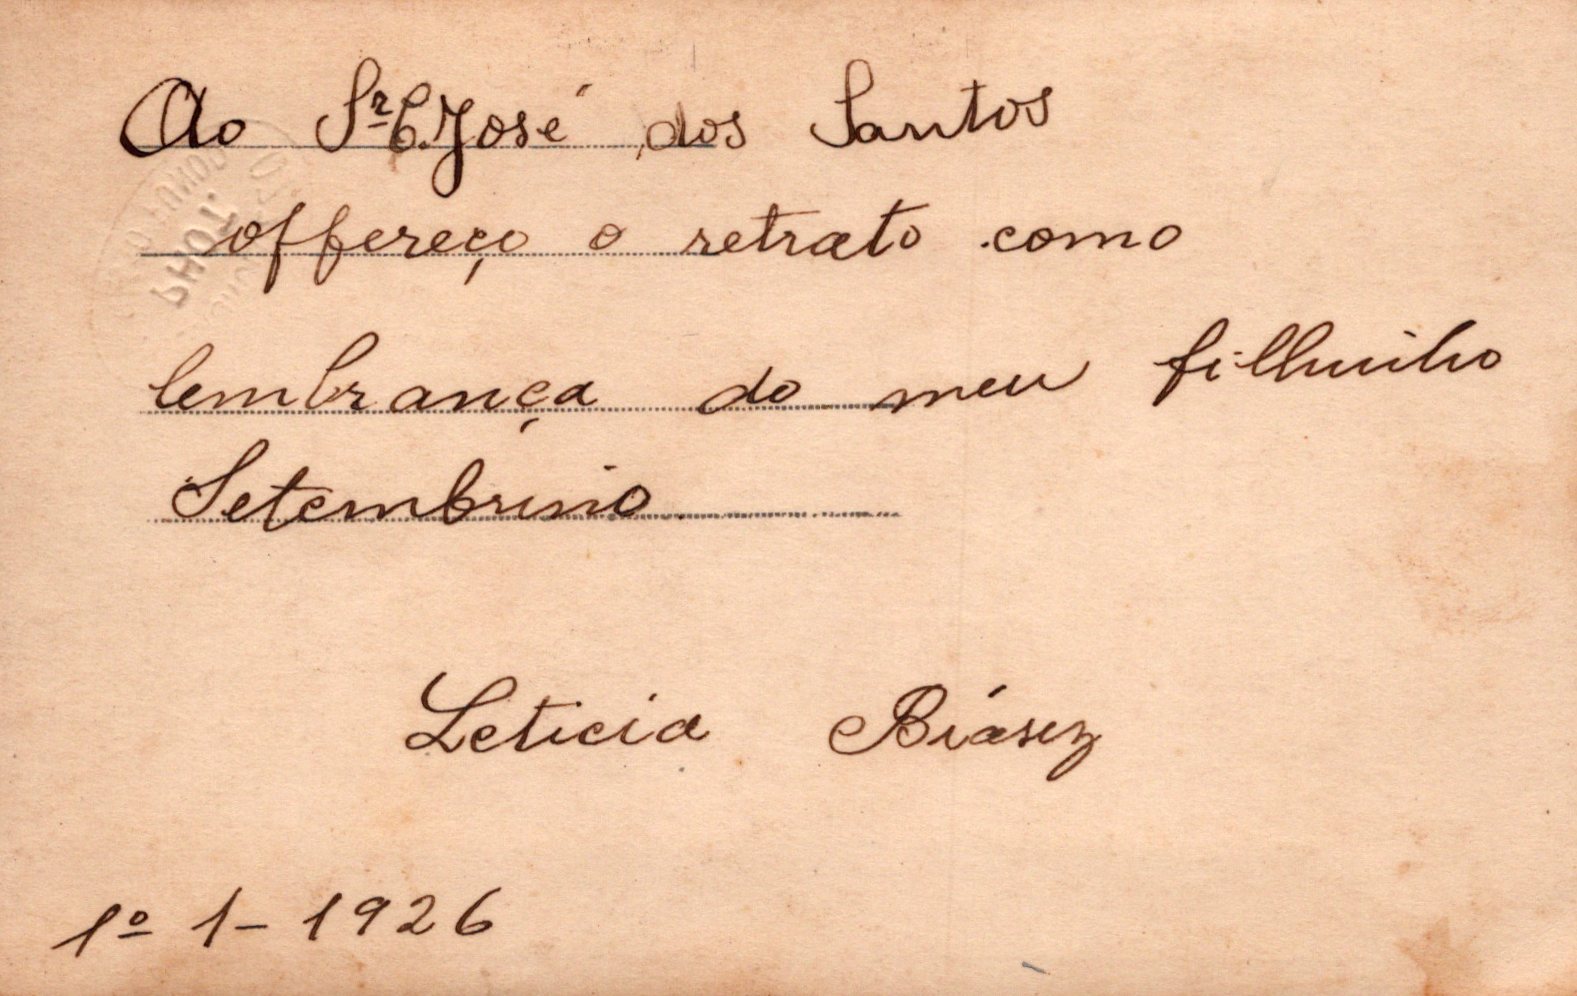 Ao Sr. C. José dos Santos
offereço o retrato como
lembrança do meu filhinho
Setembrino.
Leticia
1º 1-1926
PHOT.